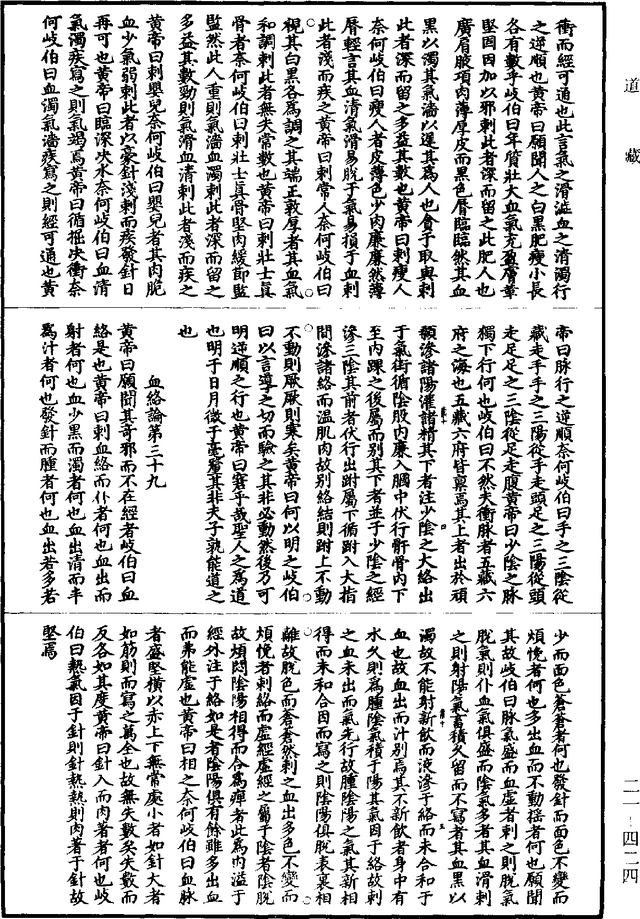 道藏
衝而經可通也此言氣之滑澁血之清濁行
之逆順也黃帝曰願聞人之白黑肥瘦小長
各有數乎岐伯曰年質壯大血氣充盈膚革
堅固因加以邪刺此者深而留之此肥人也
廣肩腋項肉薄厚皮而黑色脣臨臨然其血
黑以濁其氣濇以遲其為人也貪于取與刺
此者深而留之多益其數也黃帝曰刺瘦人
奈何岐伯曰瘦人者皮薄色少肉廉廉然薄
脣輕言其血清氣滑易脫于氣易損于血刺
此者淺而疾之黃帝曰刺常人奈何岐伯曰
視其白黑各為調之其端正敦厚者其血氣
和調刺此者無失常數也黃帝曰刺壯士真
骨者奈何岐伯曰刺壯士真骨堅肉緩節監
監然此人重則氣濇血濁刺此者深而留之
多益其數勁則氣滑血清刺此者淺而疾之
黃帝曰刺嬰兒奈何岐伯曰嬰兒者其肉脆
血少氣弱刺此者以豪針淺刺而疾發針日
再可也黃帝曰臨深決水奈何岐伯曰血清
氣濁疾寫之則氣竭焉黃帝曰循掘決衝奈
何岐伯曰血濁氣濇疾寫之則經可通也黃
帝曰脉行之逆順奈何岐伯曰手之三陰從
藏走手手之三陽從手走頭足之三陽從頭
走足足之三陰從足走腹黃帝曰少陰之脉
獨下行何也岐伯曰不然夫衝脉者五藏六
府之海也五藏六府皆稟焉其上者出於頏
顙滲諸陽灌諸精其下者注少陰之大絡出
于氣街循陰股內廉入膕中伏行骭骨內下
至內踝之後屬而別其下者並于少陰之經
滲三陰其前者伏行出跗屬下循跗入大指
間滲諸絡而溫肌肉故別絡結則跗上不動
不動則厥厥則寒矣黃帝曰何以明之岐伯
曰以言導之切而驗之其非必動然後乃可
明逆順之行也黃帝曰窘乎哉聖人之為道
也明于日月微于毫釐其非夫子孰能道之
也
血絡論第三十九
黃帝曰願聞其奇邪而不在經者岐伯曰血
絡是也黃帝曰刺血絡而仆者何也血出而
射者何也血少黑而濁者何也血出清而半
為汁者何也發針而腫者何也血出若多若
少而面色蒼蒼者何也發針而面色不變而
煩悗者何也多出血而不動搖者何也願聞
其故岐伯曰脉氣盛而血虛者刺之則脫氣
脫氣則仆血氣俱盛而陰氣多者其血滑刺
之則射陽氣畜積久留而不寫者其血黑以
濁故不能射新飲而液滲于絡而未合和于
血也故血出而汁別焉其不新飲者身中有
水久則為腫陰氣積于陽其氣因于絡故刺
之血未出而氣先行故腫陰陽之氣其新相
得而未和合因而寫之則陰陽俱脫表裏相
離故脫色而蒼蒼然刺之血出多色不變而
煩悗者刺絡而虛經虛經之屬于陰者陰脫
故煩悶陰陽相得而合為痺者此為內溢于
經外注于絡如是者陰陽俱有餘雖多出血
而弗能虛也黃帝曰相之奈何岐伯曰血脉
者盛堅橫以赤上下無常處小者如針大者
如筋則而寫之萬全也故無失數矣失數而
反各如其度黃帝曰針入而肉著者何也岐
伯曰熱氣因于針則針熱熱則肉著于針故
堅焉
二一-四二四